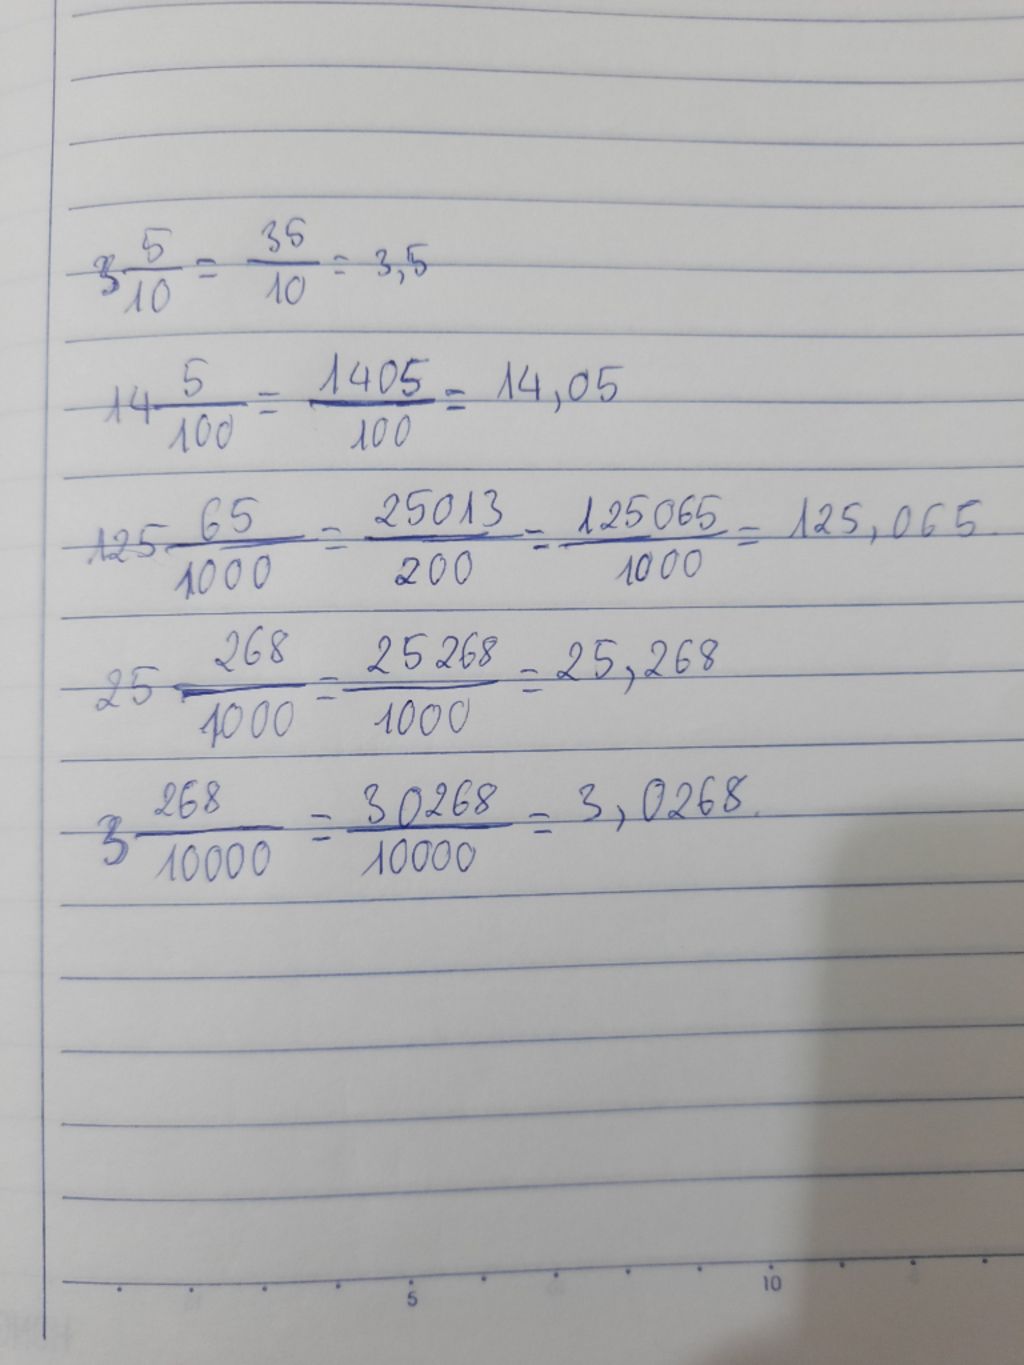 3 5/10 = 35/10 = 3,5
14 5/100 = 1405/100 = 14,05
125 65/1000 = 25013/200 = 125065/1000 = 125,065
25 268/1000 = 25268/1000 = 25,268
3 268/10000 = 30268/10000 = 3,0268.
5 10